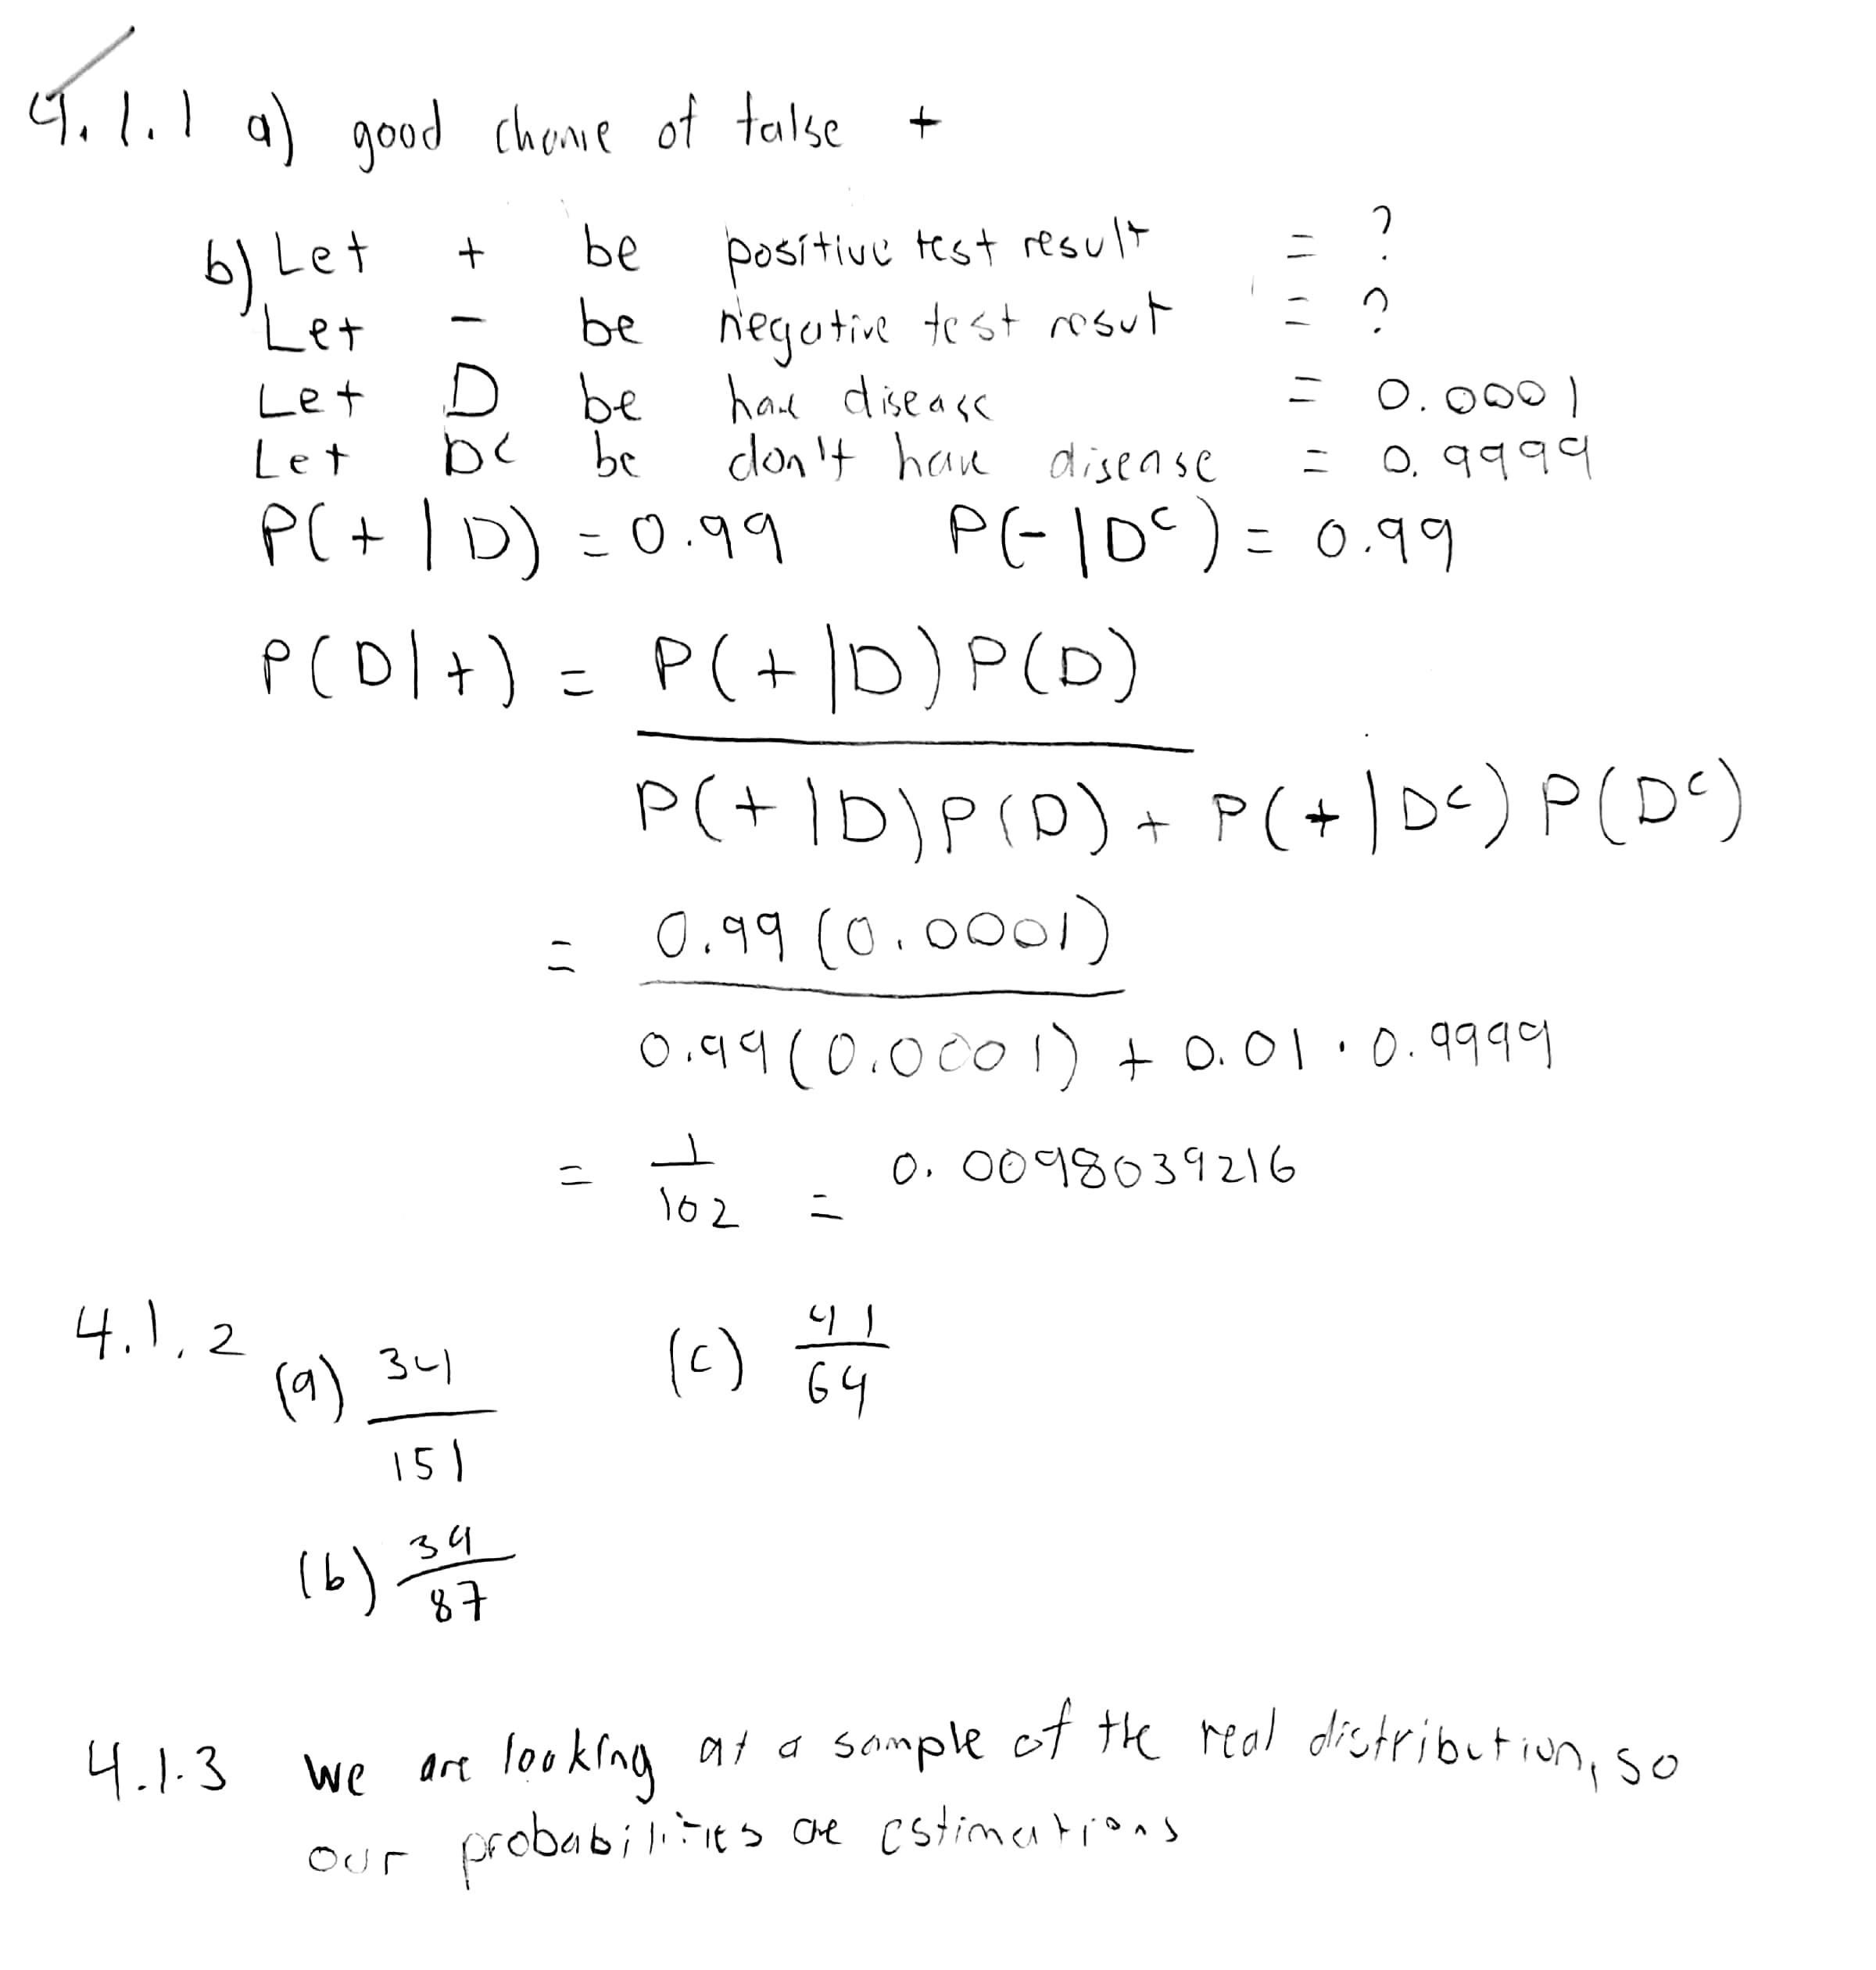 4.1.1 a) good chance of false +
b) Let + be positive test result = ?
Let - be negative test resut = ?
Let D be have disease = 0.0001
Let Dᶜ be don't have disease = 0.9999
P(+|D) = 0.99 P(-|Dᶜ) = 0.99
P(D|+) = P(+|D)P(D)
P(+|D)P(D) + P(+|Dᶜ)P(Dᶜ)
= 0.99(0.0001)
0.99(0.0001) + 0.01 · 0.9999
= 1/102 = 0.0098039216
4.1.2 (a) 34/151 (c) 41/64
(b) 34/87
4.1.3 we are looking at a sample of the real distribution, so
our probabilities are estimations